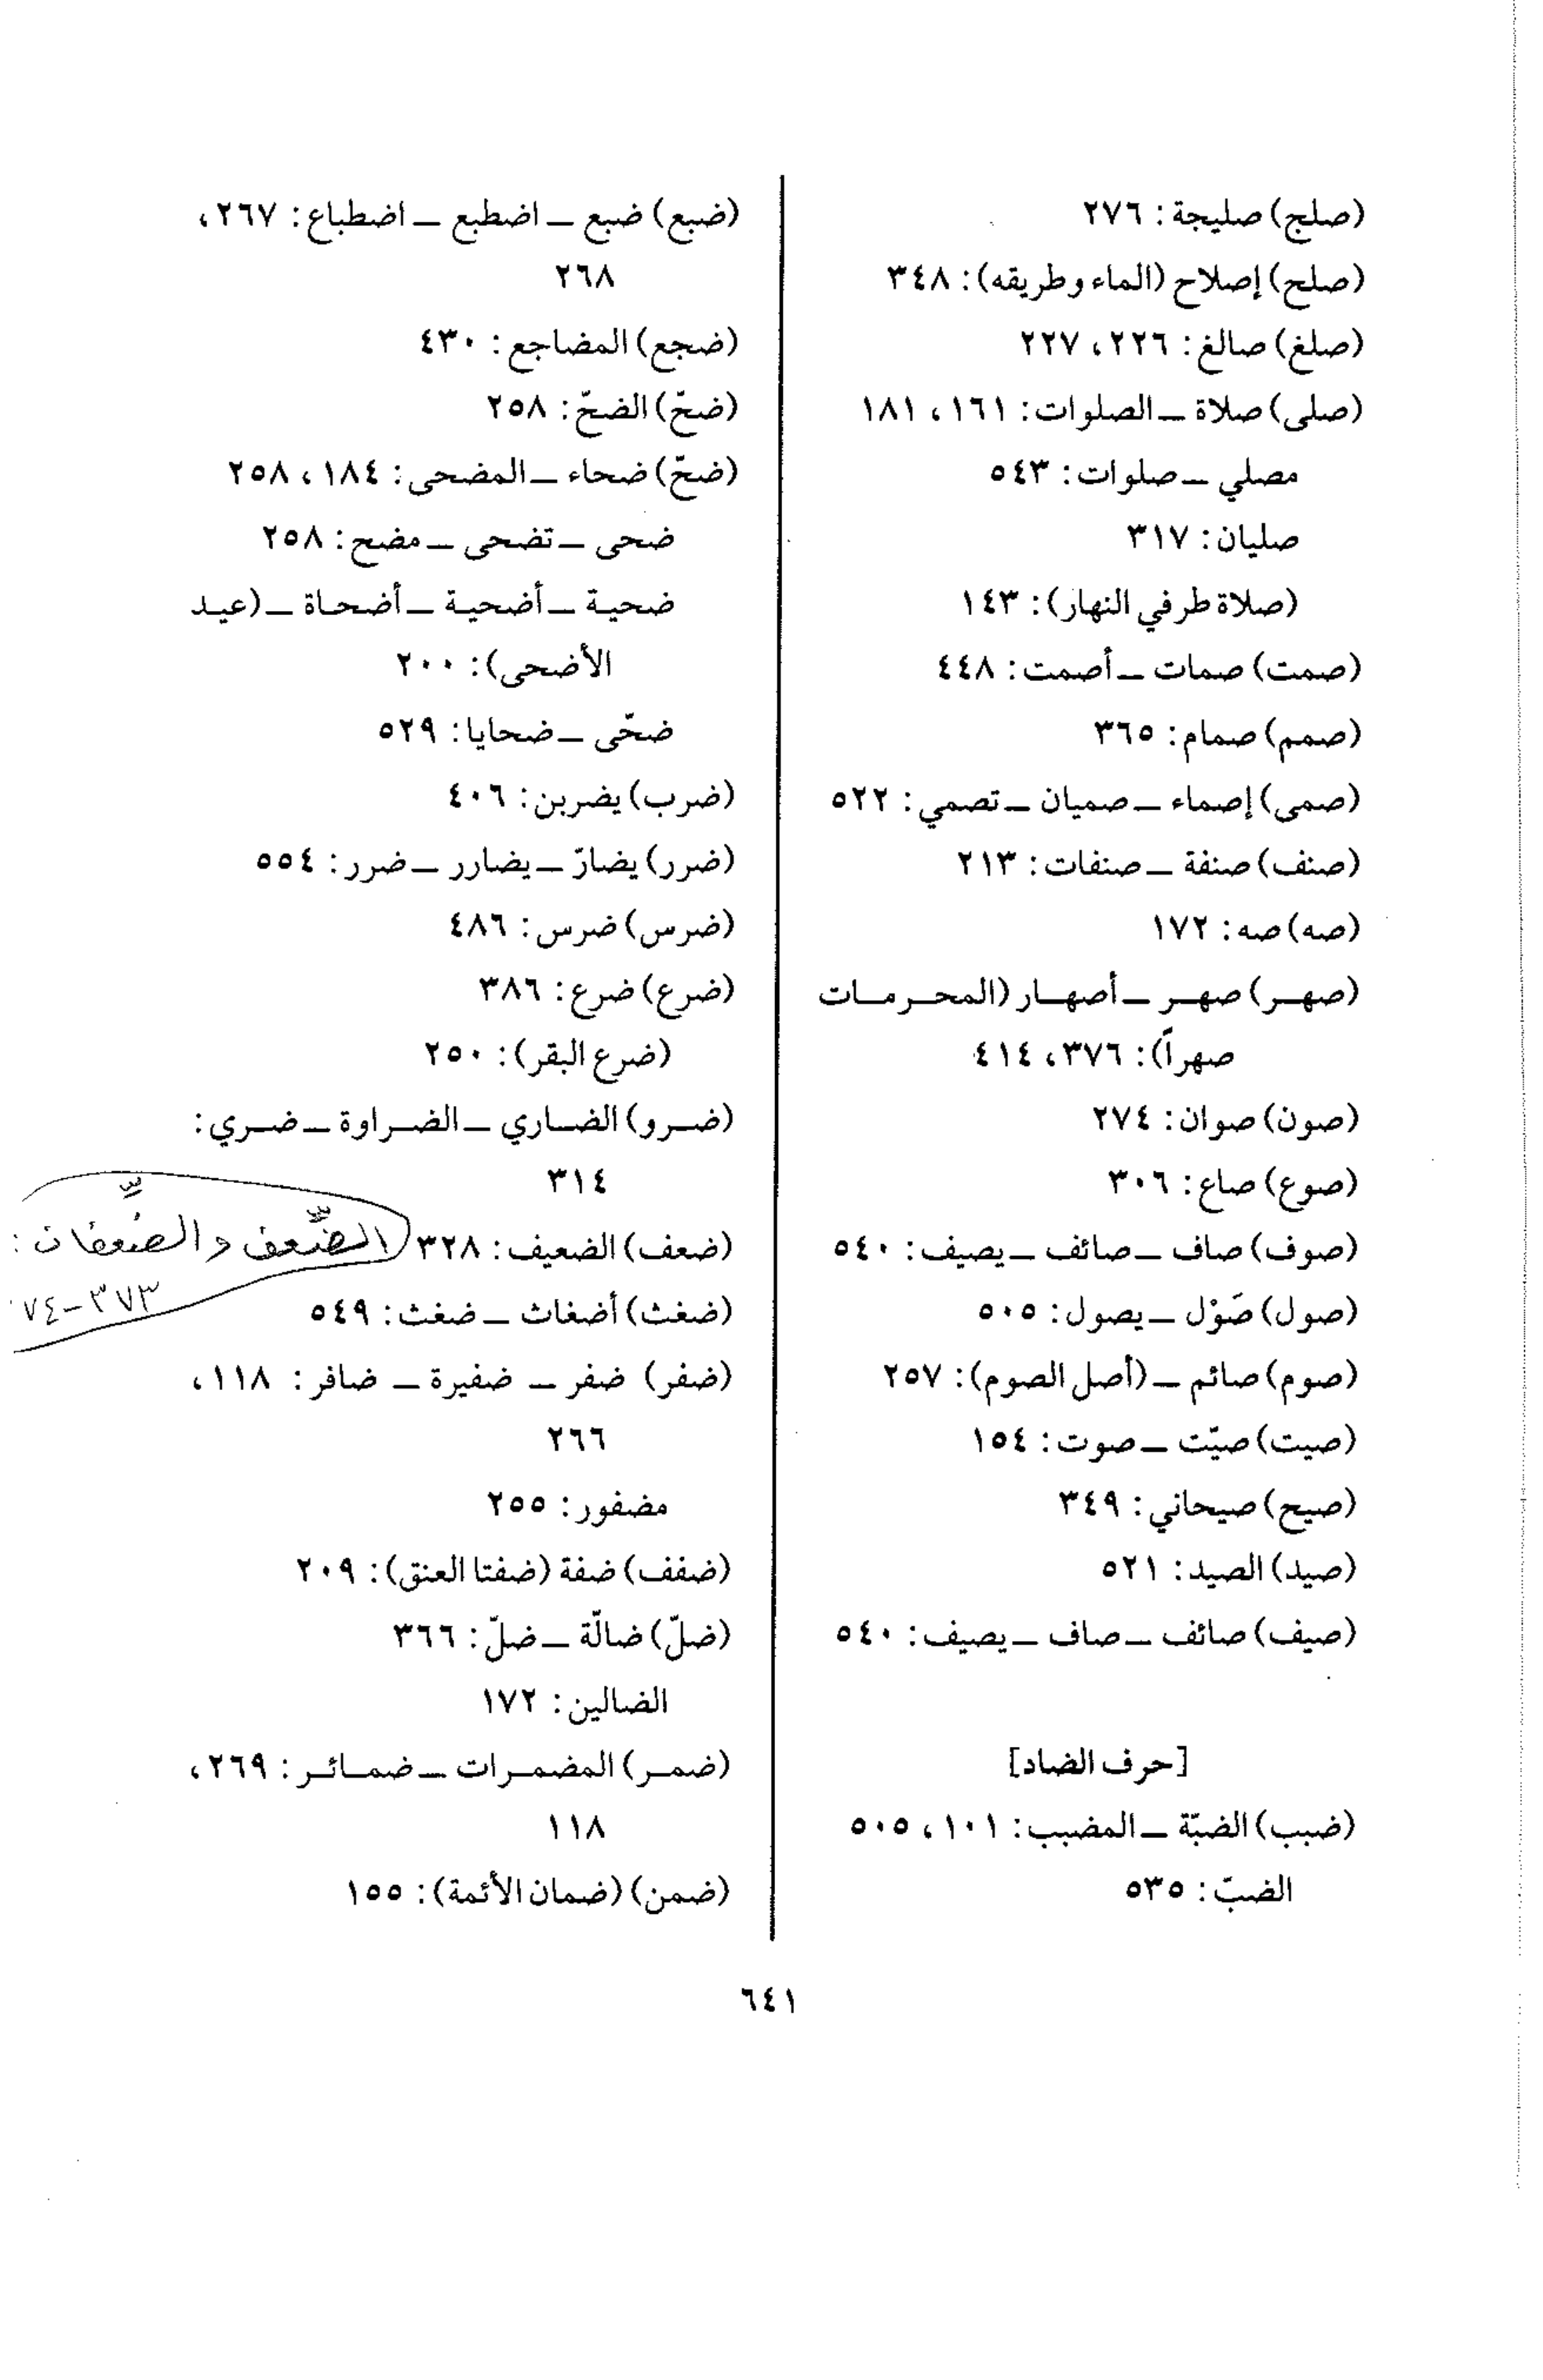 (صلج) صليجة: ٢٧٦
(صلح) إصلاح (الماء وطريقه): ٣٤٨
(صلغ) صالغ: ٢٢٦، ٢٢٧
(صلى) صلاة ــ الصلوات: ١٦١، ١٨١
مصلي ــ صلوات: ٥٤٣
صليان: ٣١٧
(صلاة طرفي النهار): ١٤٣
(صمت) صمات ــ أصمت: ٤٤٨
(صمم) صمام: ٣٦٥
(صمى) إصماء ــ صميان ــ تصمي: ٥٢٢
(صنف) صنفة ــ صنفات: ٢١٣
(صه) صه: ١٧٢
(صهـر) صهـر ــ أصهـار (المحـرمـات
صهراً): ٣٧٦، ٤١٤
(صون) صوان: ٢٧٤
(صوع) صاع: ٣٠٦
(صوف) صاف ــ صائف ــ يصيف: ٥٤٠
(صول) صَوْل ــ يصول: ٥٠٥
(صوم) صائم ــ (أصل الصوم): ٢٥٧
(صيت) صيّت ــ صوت: ١٥٤
(صيح) صيحاني: ٣٤٩
(صيد) الصيد: ٥٢١
(صيف) صائف ــ صاف ــ يصيف: ٥٤٠
[حرف الضاد]
(ضبب) الضبّة ــ المضبب: ١٠١، ٥٠٥
الضبّ: ٥٣٥
(ضبع) ضبع ــ اضطبع ــ اضطباع: ٢٦٧،
٢٦٨
(ضجع) المضاجع: ٤٣٠
(ضحّ) الضحّ: ٢٥٨
(ضحّ) ضحاء ــ المضحى: ١٨٤، ٢٥٨
ضحى ــ تضحى ــ مضح: ٢٥٨
ضحيـة ــ أضحيـة ــ أضحـاة ــ (عيـد
الأضحى): ٢٠٠
ضحّى ــ ضحايا: ٥٢٩
(ضرب) يضربن: ٤٠٦
(ضرر) يضارّ ــ يضارر ــ ضرر: ٥٥٤
(ضرس) ضرس: ٤٨٦
(ضرع) ضرع: ٣٨٦
(ضرع البقر): ٢٥٠
(ضـرو) الضـاري ــ الضـراوة ــ ضـري:
٣١٤
(ضعف) الضعيف: ٣٢٨ الضّعف والضّعفان:
٣٧٣-٧٤
(ضغث) أضغاث ــ ضغث: ٥٤٩
(ضفر) ضفر ــ ضفيرة ــ ضافر: ١١٨،
٢٦٦
مضفور: ٢٥٥
(ضفف) ضفة (ضفتا العنق): ٢٠٩
(ضلّ) ضالّة ــ ضلّ: ٣٦٦
الضالين: ١٧٢
(ضمـر) المضمـرات ــ ضمـائـر: ٢٦٩،
١١٨
(ضمن) (ضمان الأئمة): ١٥٥
٦٤١